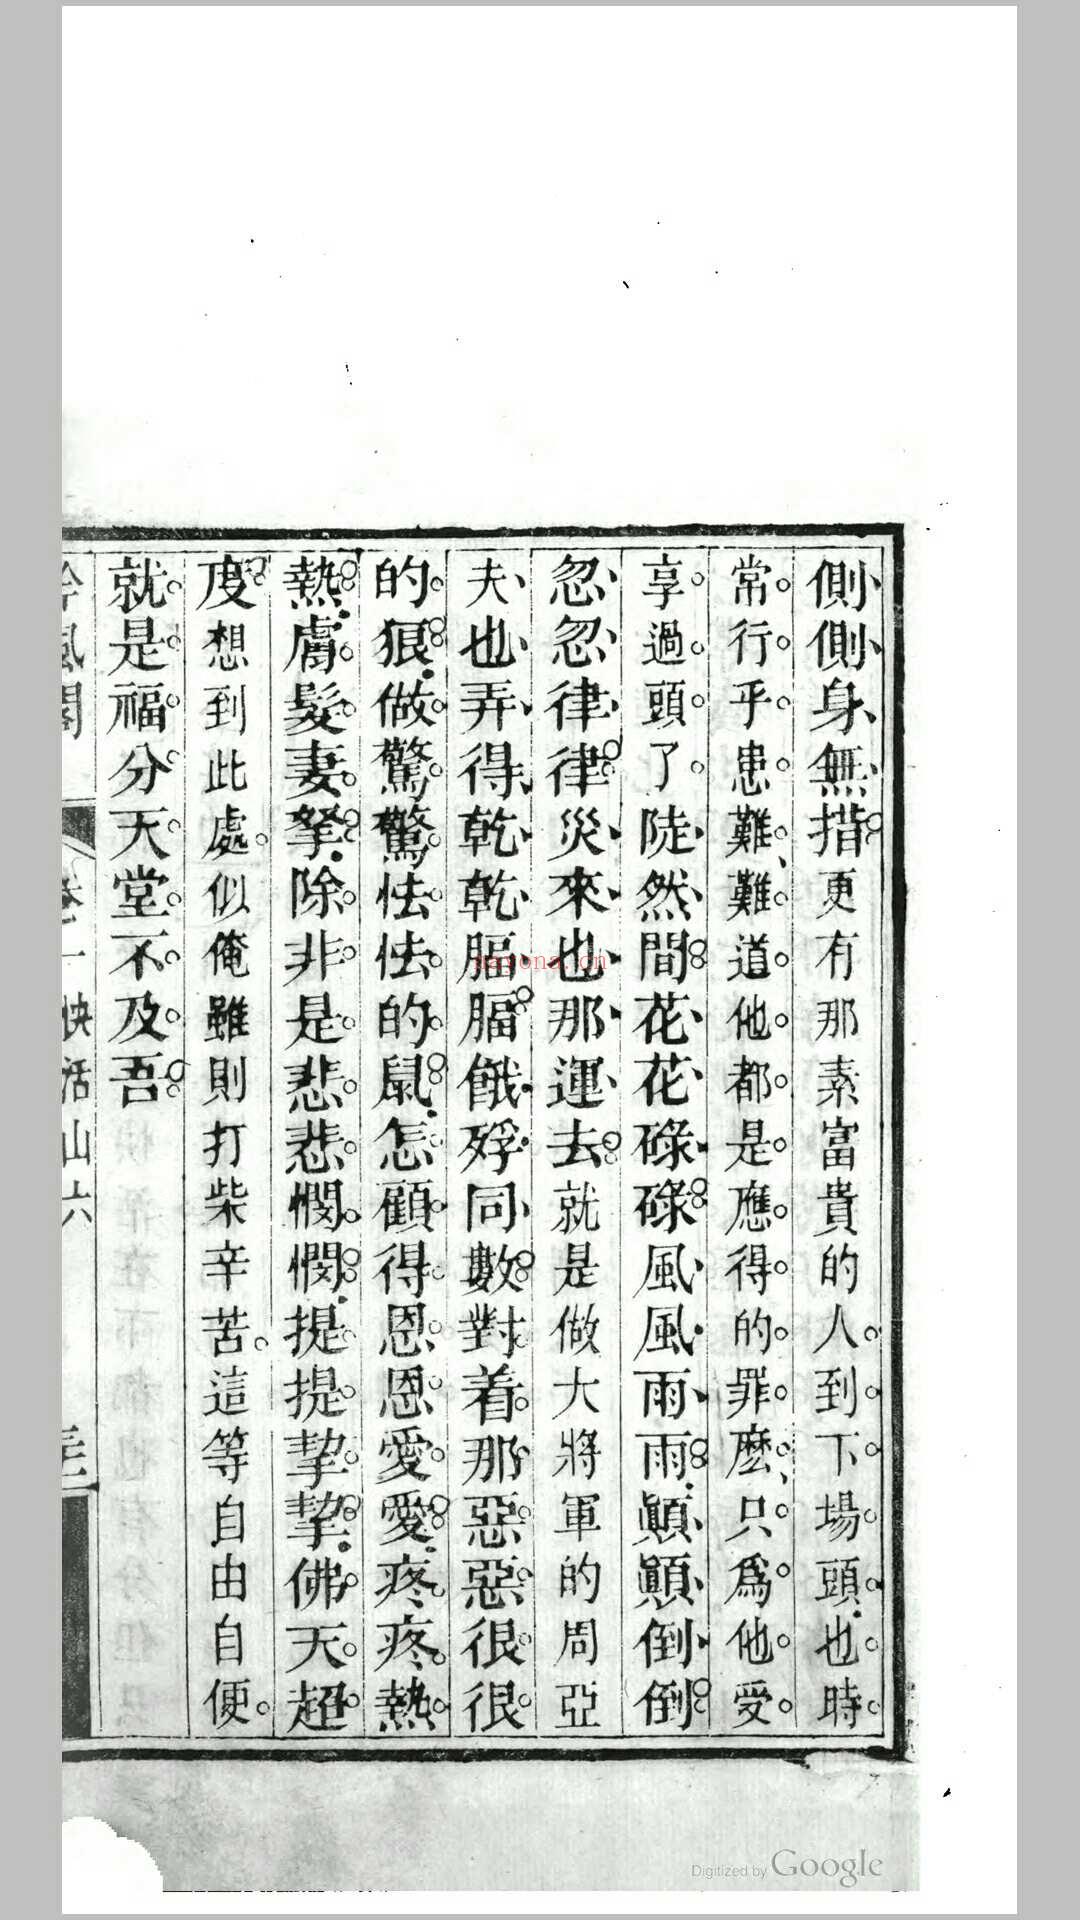 側側身無措更有那素富貴的人到下場頭也時
常行乎患難難道他都是應得的罪麽只爲他受
享過頭了陡然間花花碌碌風風雨雨顚顚倒倒
忽忽律律災來也那運去就是做大將軍的周亞
夫也弄得乾乾膈膈餓殍同數對着那惡惡很很
的狠做驚驚怯怯的鼠怎顧得恩恩愛愛疼疼熱
熱膚髮妻孥除非是悲悲憫憫提提挈挈佛天超
度想到此處似俺雖則打柴辛苦這等自由自便
就是福分天堂不及吾
吟風閣 卷一 快活山六 三
nayona.cn
Digitized by Google